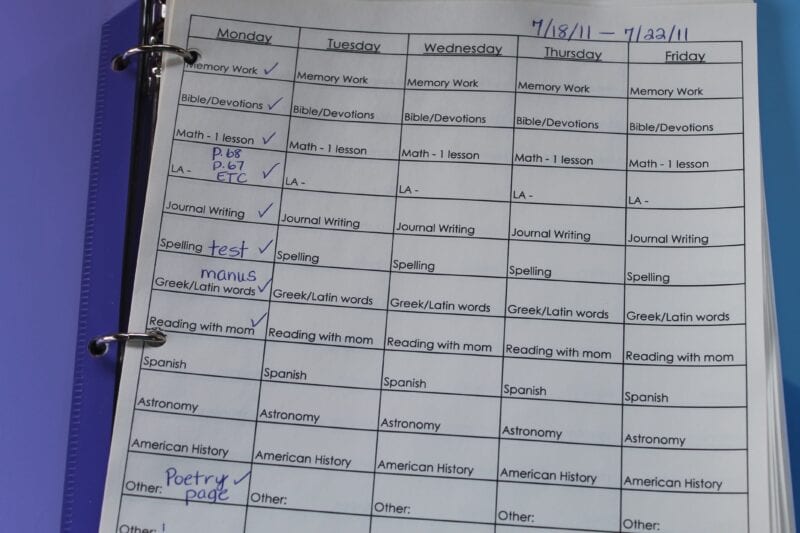 7/18/11 — 7/22/11
Monday Tuesday Wednesday Thursday Friday
Memory Work ✓ Memory Work Memory Work Memory Work Memory Work
Bible/Devotions ✓ Bible/Devotions Bible/Devotions Bible/Devotions Bible/Devotions
Math - 1 lesson ✓ Math - 1 lesson Math - 1 lesson Math - 1 lesson Math - 1 lesson
P.68
P.67
LA - ETC ✓ LA - LA - LA - LA -
Journal Writing ✓ Journal Writing Journal Writing Journal Writing Journal Writing
Spelling test ✓ Spelling Spelling Spelling Spelling
manus
Greek/Latin words ✓ Greek/Latin words Greek/Latin words Greek/Latin words Greek/Latin words
Reading with mom ✓ Reading with mom Reading with mom Reading with mom Reading with mom
Spanish Spanish Spanish Spanish Spanish
Astronomy Astronomy Astronomy Astronomy Astronomy
American History American History American History American History American History
Other: Poetry ✓ Other: Other: Other: Other:
page
Other: